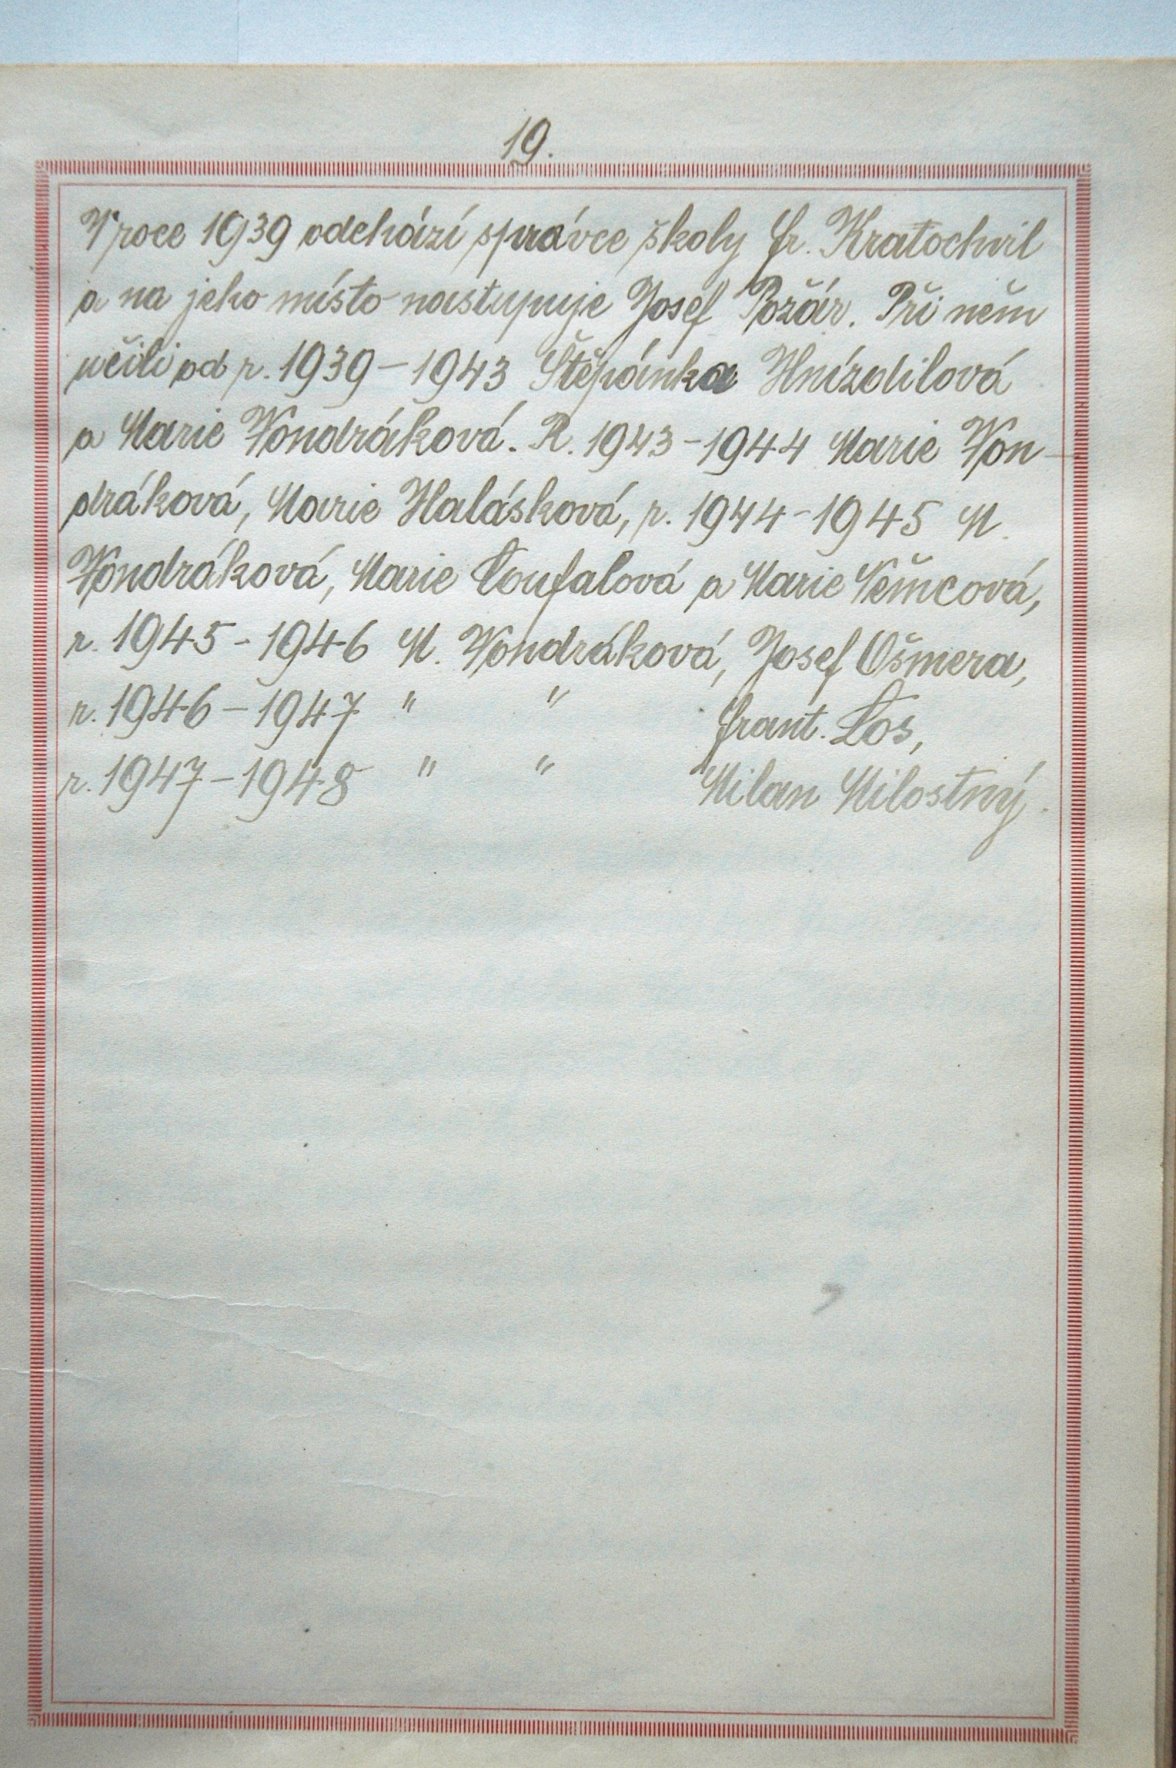 19.
V roce 1939 odchází správce školy fr. Kratochvil
a na jeho místo nastupuje Josef Požár. Při něm
učili od r. 1939 – 1943 Štěpánka Hnízdilová
a Marie Vondráková. R. 1943 – 1944 Marie Von-
dráková, Marie Halásková, r. 1944 – 1945 M.
Vondráková, Marie Coufalová a Marie Němcová,
r. 1945 – 1946 M. Vondráková, Josef Ošmera,
r. 1946 – 1947 " " frant. Los,
r. 1947 – 1948 " " Milan Milostný.